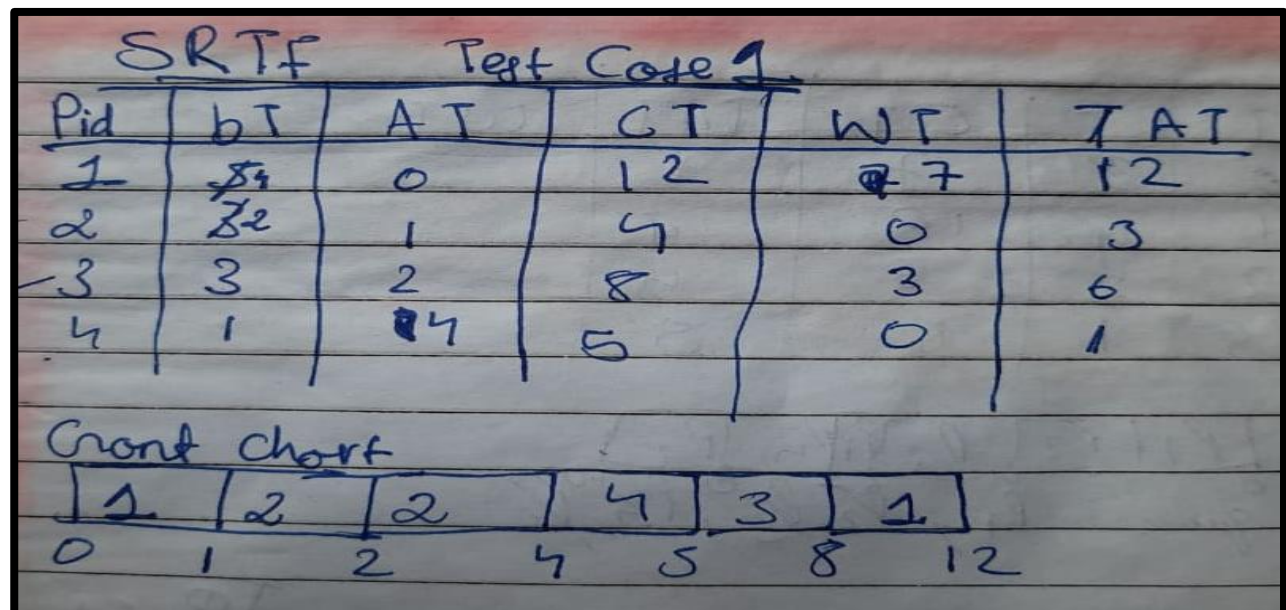 SRTF Test Case 1
Pid bT AT CT WT TAT
1 5 4 0 12 7 12
2 3 2 1 4 0 3
3 3 2 8 3 6
4 1 4 5 0 1
Gront Chart
1 2 2 4 3 1
0 1 2 4 5 8 12